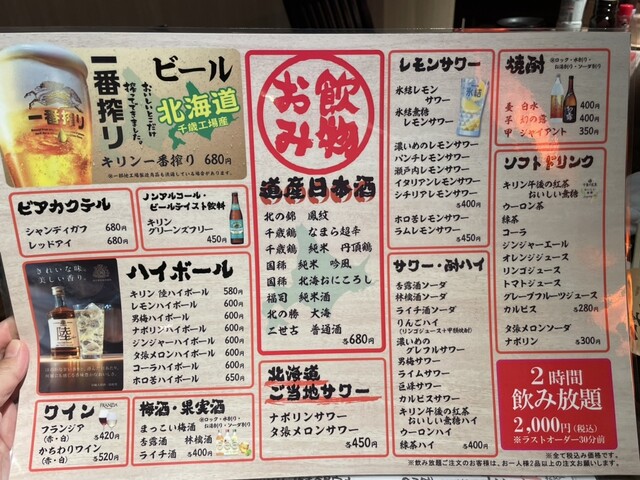 一番搾り
おいしいとこだけ
搾ってできました。
ビール
北海道
千歳工場産
キリン一番搾り 680円
ビアカクテル
シャンディガフ 680円
レッドアイ 680円
ノンアルコール・
ビールテイスト飲料
キリン
グリーンズフリー
450円
きれいな味。
美しい香り。
陸
ハイボール
キリン 陸ハイボール 580円
レモンハイボール 600円
男梅ハイボール 600円
ナポリンハイボール 600円
ジンジャーハイボール 600円
夕張メロンハイボール 600円
コーラハイボール 600円
ホロ苦ハイボール 650円
ワイン
フランジア
(赤・白) 各420円
かちわりワイン
(赤・白) 各520円
梅酒・果実酒
各ロック・水割り・
お湯割り・ソーダ割り
まっこい梅酒
杏露酒 林檎酒
ライチ酒 各400円
お飲み物
道産日本酒
北の錦 鳳紋
千歳鶴 なまら超辛
千歳鶴 純米 丹頂鶴
国稀 純米 吟風
国稀 北海おにころし
福司 純米酒
北の勝 大海
二世古 普通酒
各680円
北海道
ご当地サワー
ナポリンサワー
夕張メロンサワー
各450円
レモンサワー
氷結レモン
サワー
氷結無糖
レモンサワー
濃いめのレモンサワー
パンチレモンサワー
瀬戸内レモンサワー
イタリアンレモンサワー
シチリアレモンサワー
各400円
ホロ苦レモンサワー
ラムレモンサワー
各450円
サワー・酎ハイ
杏露酒ソーダ
林檎酒ソーダ
ライチ酒ソーダ
りんごハイ
(リンゴジュース+甲類焼酎)
濃いめの
グレフルサワー
男梅サワー
ライムサワー
巨峰サワー
カルピスサワー
キリン午後の紅茶
おいしい無糖ハイ
ウーロンハイ
緑茶ハイ 各400円
焼酎
各ロック・水割り・
お湯割り・ソーダ割り
麦 白水 400円
芋 幻の露 400円
甲 ジャイアント 350円
ソフトドリンク
キリン午後の紅茶
おいしい無糖
ウーロン茶
緑茶
コーラ
ジンジャーエール
オレンジジュース
リンゴジュース
トマトジュース
グレープフルーツジュース
カルピス 各280円
夕張メロンソーダ
ナポリン 各300円
2時間
飲み放題
2,000円(税込)
※ラストオーダー30分前
※全て税込み価格です。
※飲み放題ご注文のお客様は、お一人様2品以上の注文お願いします。